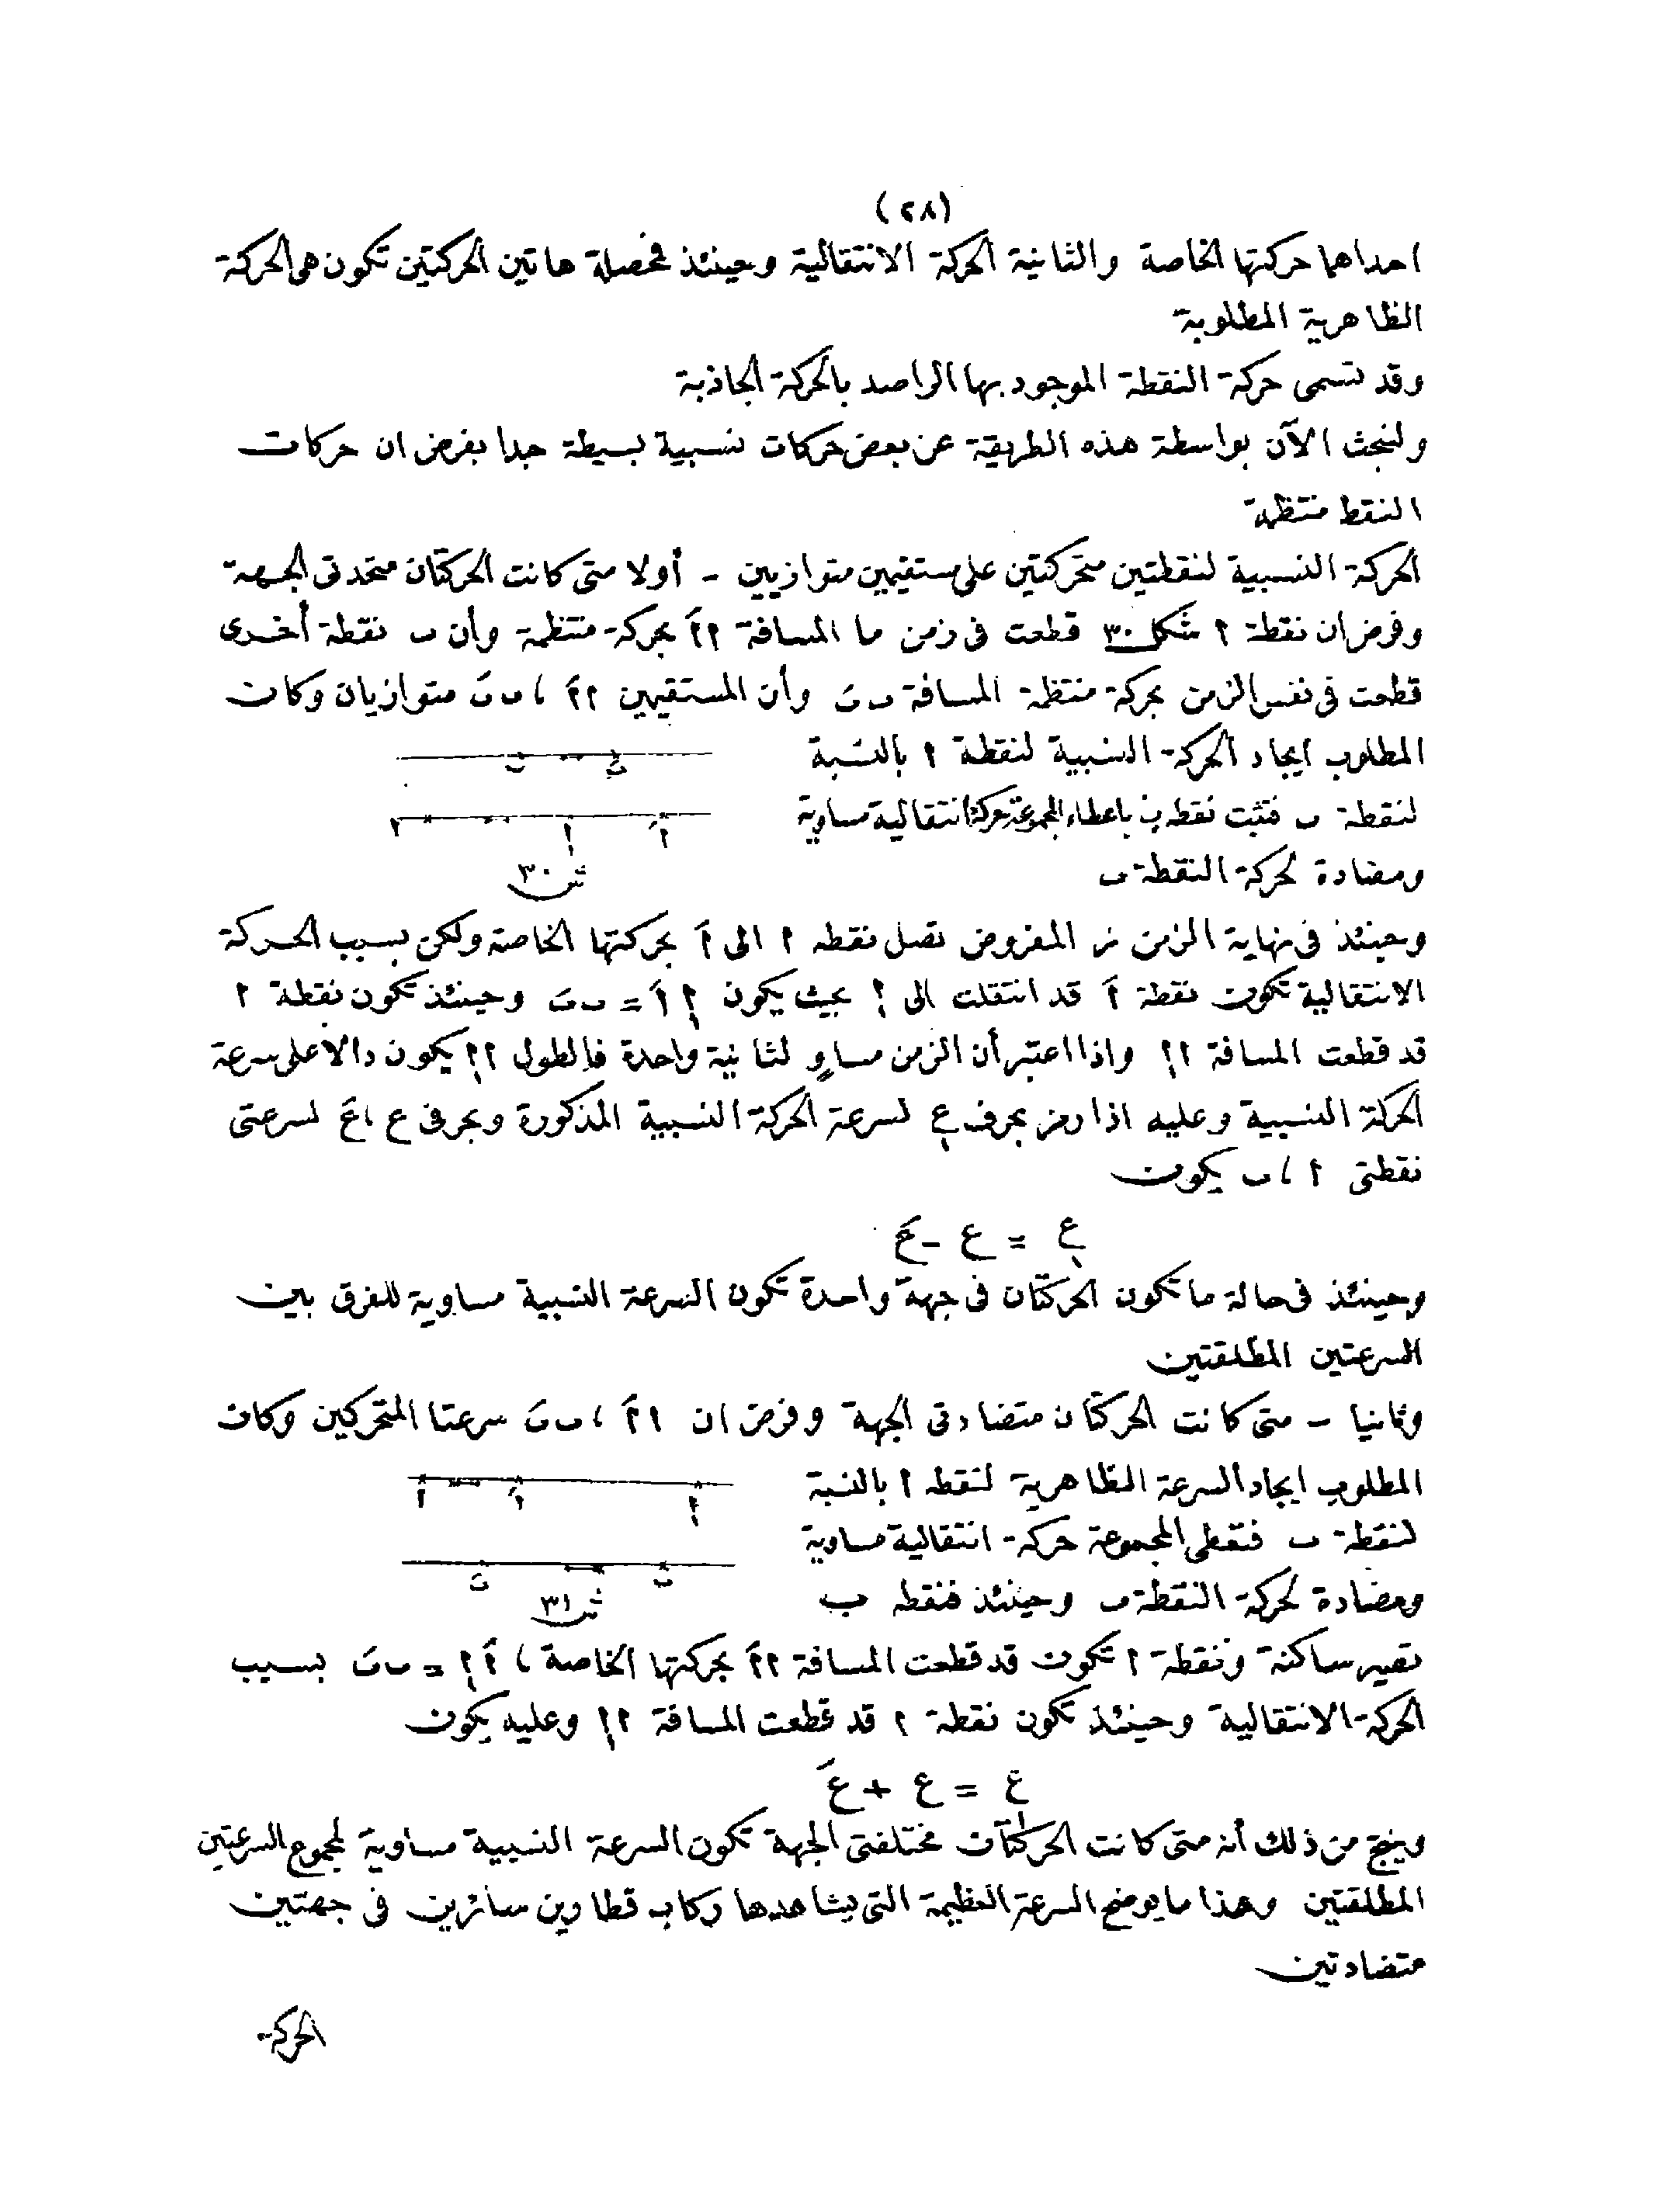 (٢٨)
احداهما حركتها الخاصة والثانية الحركة الانتقالية وحينئذ فمحصلة هاتين الحركتين تكون هى الحركة
الظاهرية المطلوبة
وقد تسمى حركة النقطة الموجود بها الراصد بالحركة الجاذبة
ولنبحث الآن بواسطة هذه الطريقة عن بعض حركات نسبية بسيطة جدا بفرض ان حركات
النقط منتظمة
الحركة النسبية لنقطتين متحركتين على مستقيمين متوازيين - أولا متى كانت الحركتان متحدتى الجهة
وفرض ان نقطة ا شكل ٣٠ قطعت فى زمن ما المسافة ااَ بحركة منتظمة وأن ب نقطة أخرى
قطعت فى نفس الزمن بحركة منتظمة المسافة ببَ وأن المستقيمين ااَ ، ببَ متوازيان وكان
المطلوب ايجاد الحركة النسبية لنقطة ا بالنسبة
لنقطة ب فنثبت نقطة ب باعطاء المجموعة حركة انتقالية مساوية
ومضادة لحركة النقطة ب
ش ٣٠
وحينئذ فى نهاية الزمن ز المفروض تصل نقطه ا الى اَ بحركتها الخاصة ولكن بسبب الحركة
الانتقالية تكون نقطة اَ قد انتقلت الى ا١ بحيث يكون ا١ اَ = ببَ وحينئذ تكون نقطة ا
قد قطعت المسافة اا١ واذا اعتبر أن الزمن مساوٍ لثانية واحدة فالطول اا١ يكون دالا على سرعة
الحركة النسبية وعليه اذا رمز بحرف ع١ لسرعة الحركة النسبية المذكورة وبحرفى ع ، عَ لسرعتى
نقطتى ا ، ب يكون
ع١ = ع - عَ
وحينئذ فى حالة ما تكون الحركتان فى جهة واحدة تكون السرعة النسبية مساوية للفرق بين
السرعتين المطلقتين
وثانيا - متى كانت الحركتان متضادتى الجهة وفرض ان ااَ ، ببَ سرعتا المتحركين وكان
المطلوب ايجاد السرعة الظاهرية لنقطه ا بالنسبة
لنقطة ب فنعطى المجموعة حركة انتقالية مساوية
ومضادة لحركة النقطة ب وحينئذ فنقطه ب
ش ٣١
تصير ساكنة ونقطة ا تكون قد قطعت المسافة ااَ بحركتها الخاصة ، اَ ا١ = ببَ بسبب
الحركة الانتقالية وحينئذ تكون نقطة ا قد قطعت المسافة اا١ وعليه يكون
ع١ = ع + عَ
وينتج من ذلك أنه متى كانت الحركتان مختلفتى الجهة تكون السرعة النسبية مساوية لمجموع السرعتين
المطلقتين وهذا ما يوضح السرعة العظيمة التى يشاهدها ركاب قطارين سائرين فى جهتين
متضادتين
الحركة